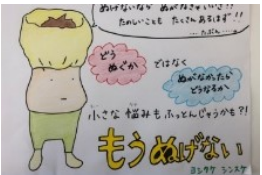 ぬげないなら ぬがなきゃいい!!
たのしいことも たくさんあるはず!!
…たぶん…。
どう
ぬぐか
ではなく
ぬげなかったら
どうなるか
小さな悩みもふっとんじゃうかも?!
もうぬげない
ヨシタケ シンスケ